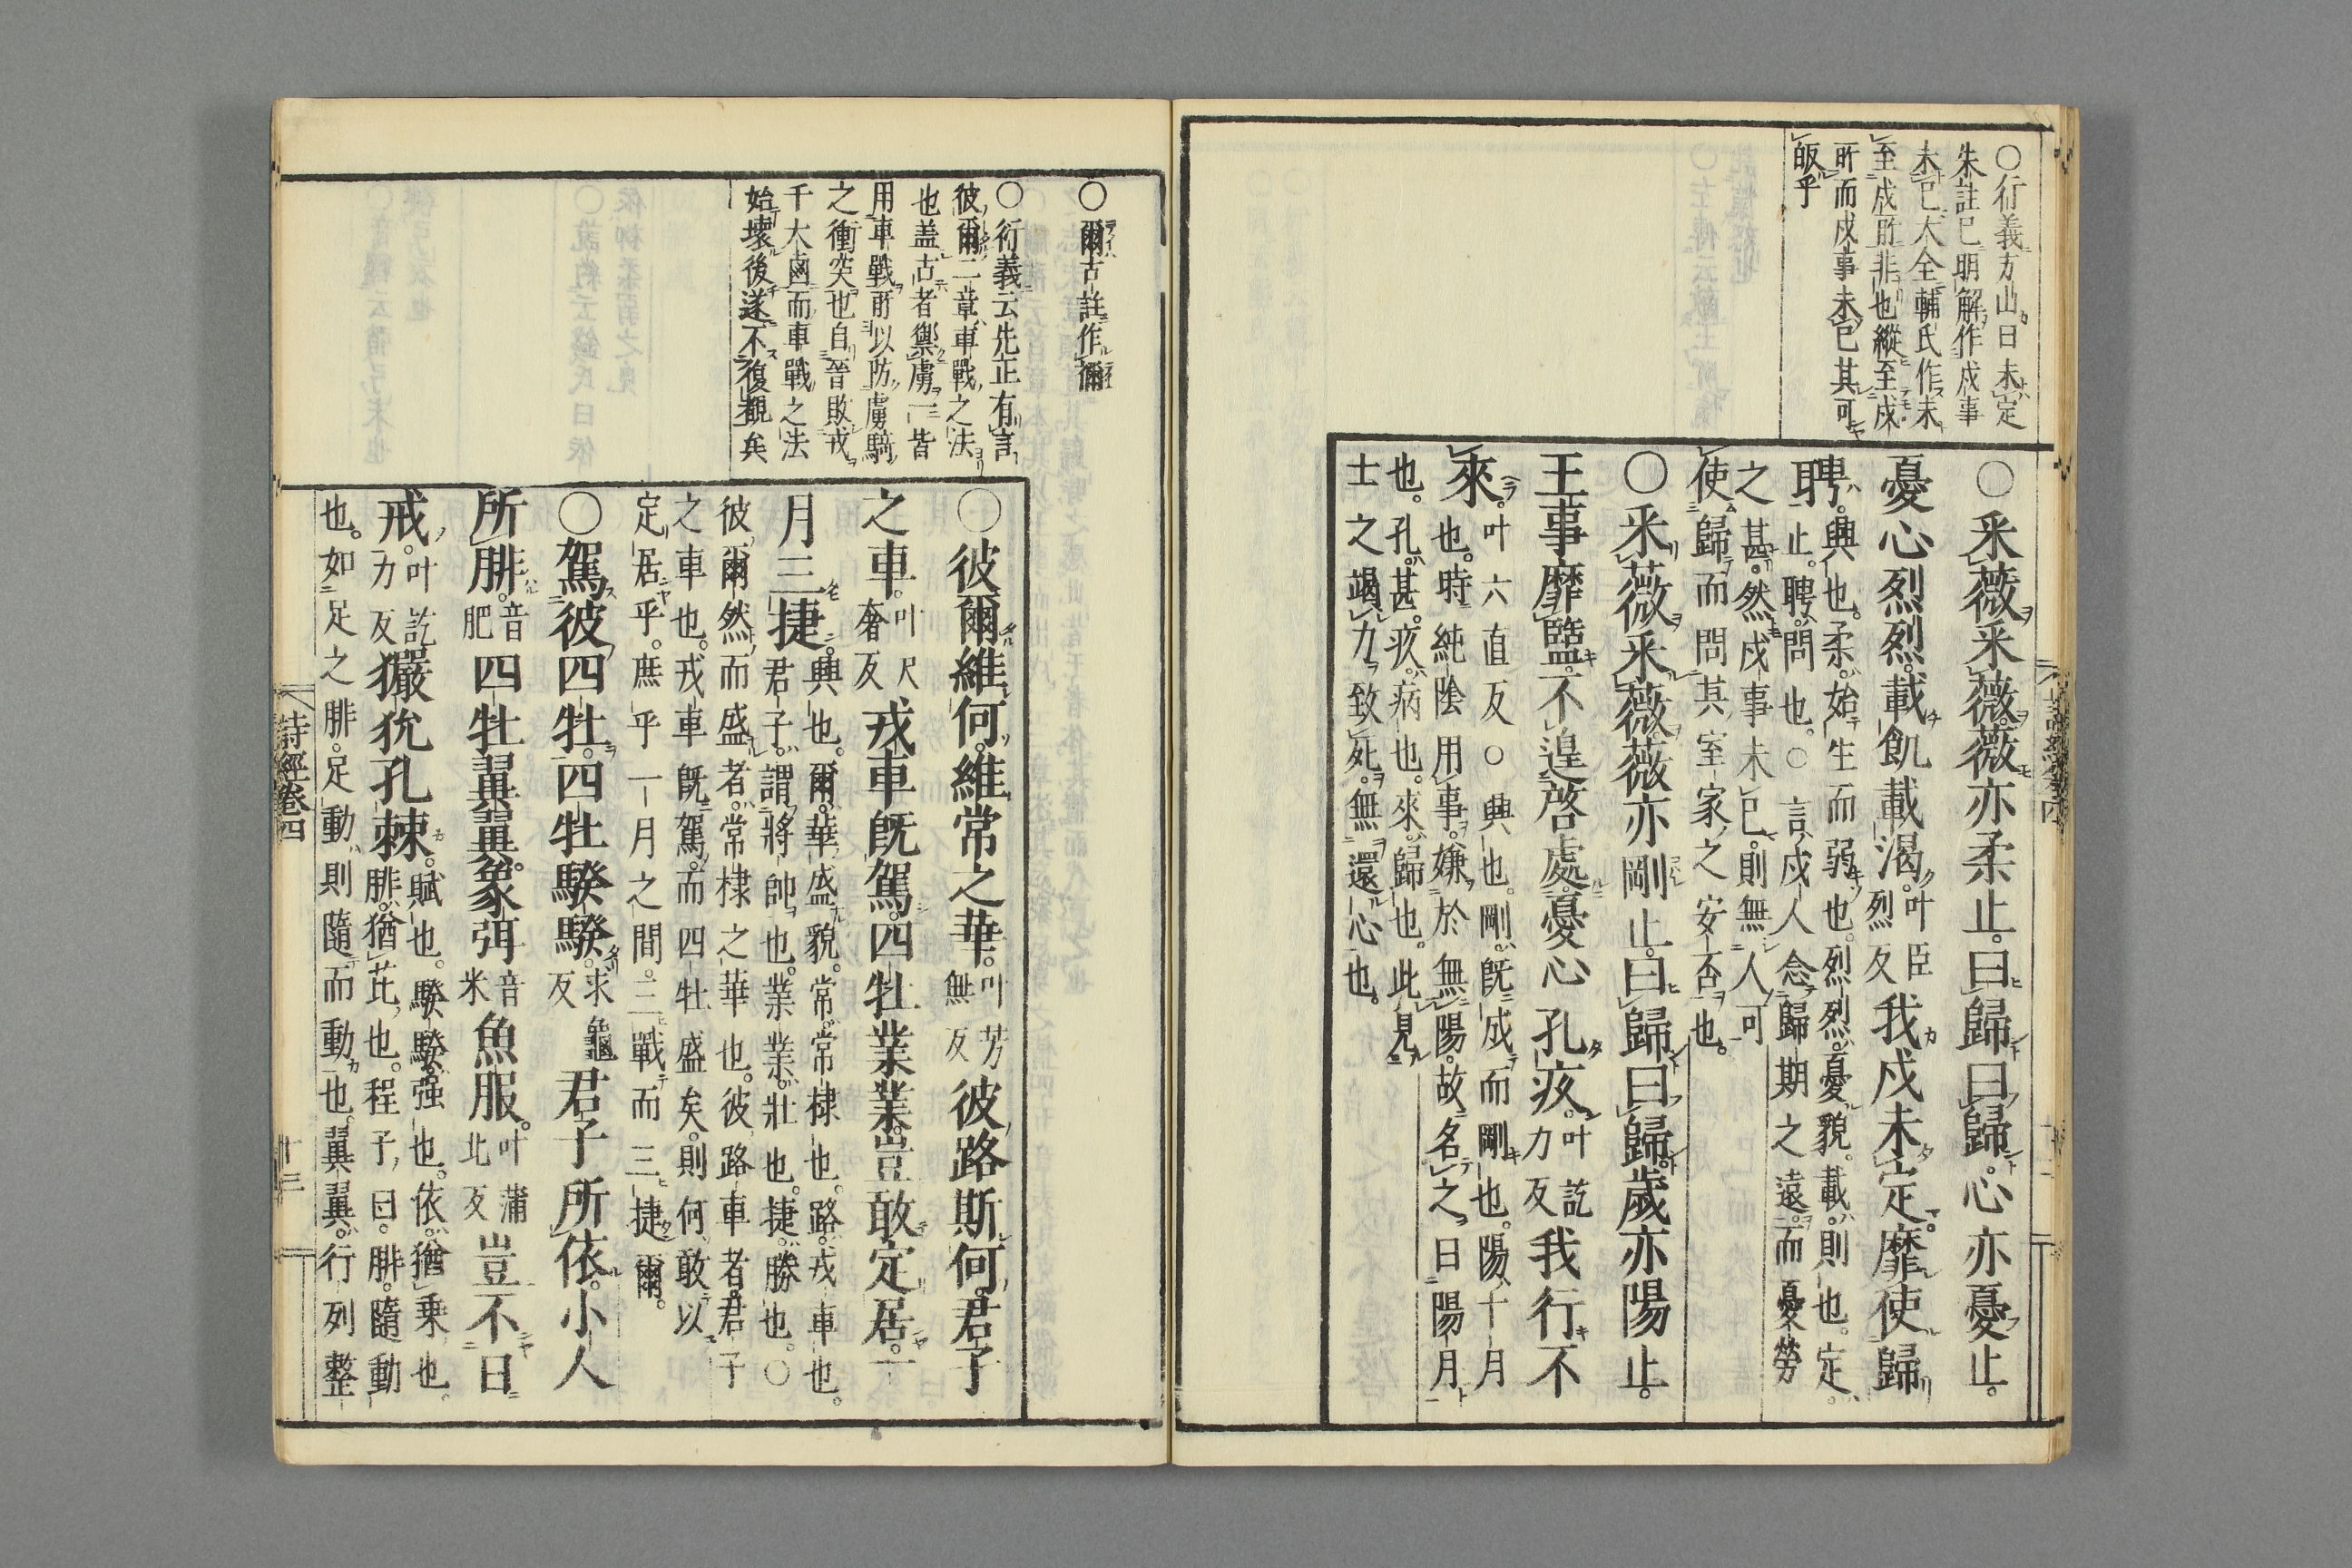 ○衍義方山曰未定
朱註已明解作戍事
未已大全輔氏作未
至戍所非也縱至戍
所而戍事未已其可
皈乎
○采薇采薇薇亦柔止曰歸曰歸心亦憂止
憂心烈烈載飢載渴叶臣烈反我戍未定靡使歸
聘興也柔始生而弱也烈烈憂貌載則也定
止聘問也○言戍人念歸期之遠而憂勞
之甚然戍事未已則無人可
使歸而問其室家之安否也
○采薇采薇薇亦剛止曰歸曰歸歲亦陽止
王事靡盬不遑啓處憂心孔疚叶訖力反我行不
來叶六直反○興也剛既成而剛也陽十月
也時純陰用事嫌於無陽故名之曰陽月
也孔甚疚病也來歸也此見
士之竭力致死無還心也
○爾古註作薾
○衍義云先正有言
彼爾二章車戰之法
也蓋古者禦虜一皆
用車戰所以防虜騎
之衝突也自晉敗戎
千大鹵而車戰之法
始壞後遂不復覩矣
○彼爾維何維常之華叶芳無反彼路斯何君子
之車叶尺奢反戎車既駕四牡業業豈敢定居一
月三捷興也爾華盛貌常常棣也路戎車也
君子謂將帥也業業壯也捷勝也○
彼爾然而盛者常棣之華也彼路車者君子
之車也戎車既駕而四牡盛矣則何敢以
定居乎庶乎一月之間三戰而三捷爾
○駕彼四牡四牡騤騤求龜反君子所依小人
所腓音肥四牡翼翼象弭音米魚服叶蒲北反豈不日
戒叶訖力反玁狁孔棘賦也騤騤强也依猶乘也
腓猶芘也程子曰腓隨動
也如足之腓足動則隨而動也翼翼行列整
詩經卷四
十三